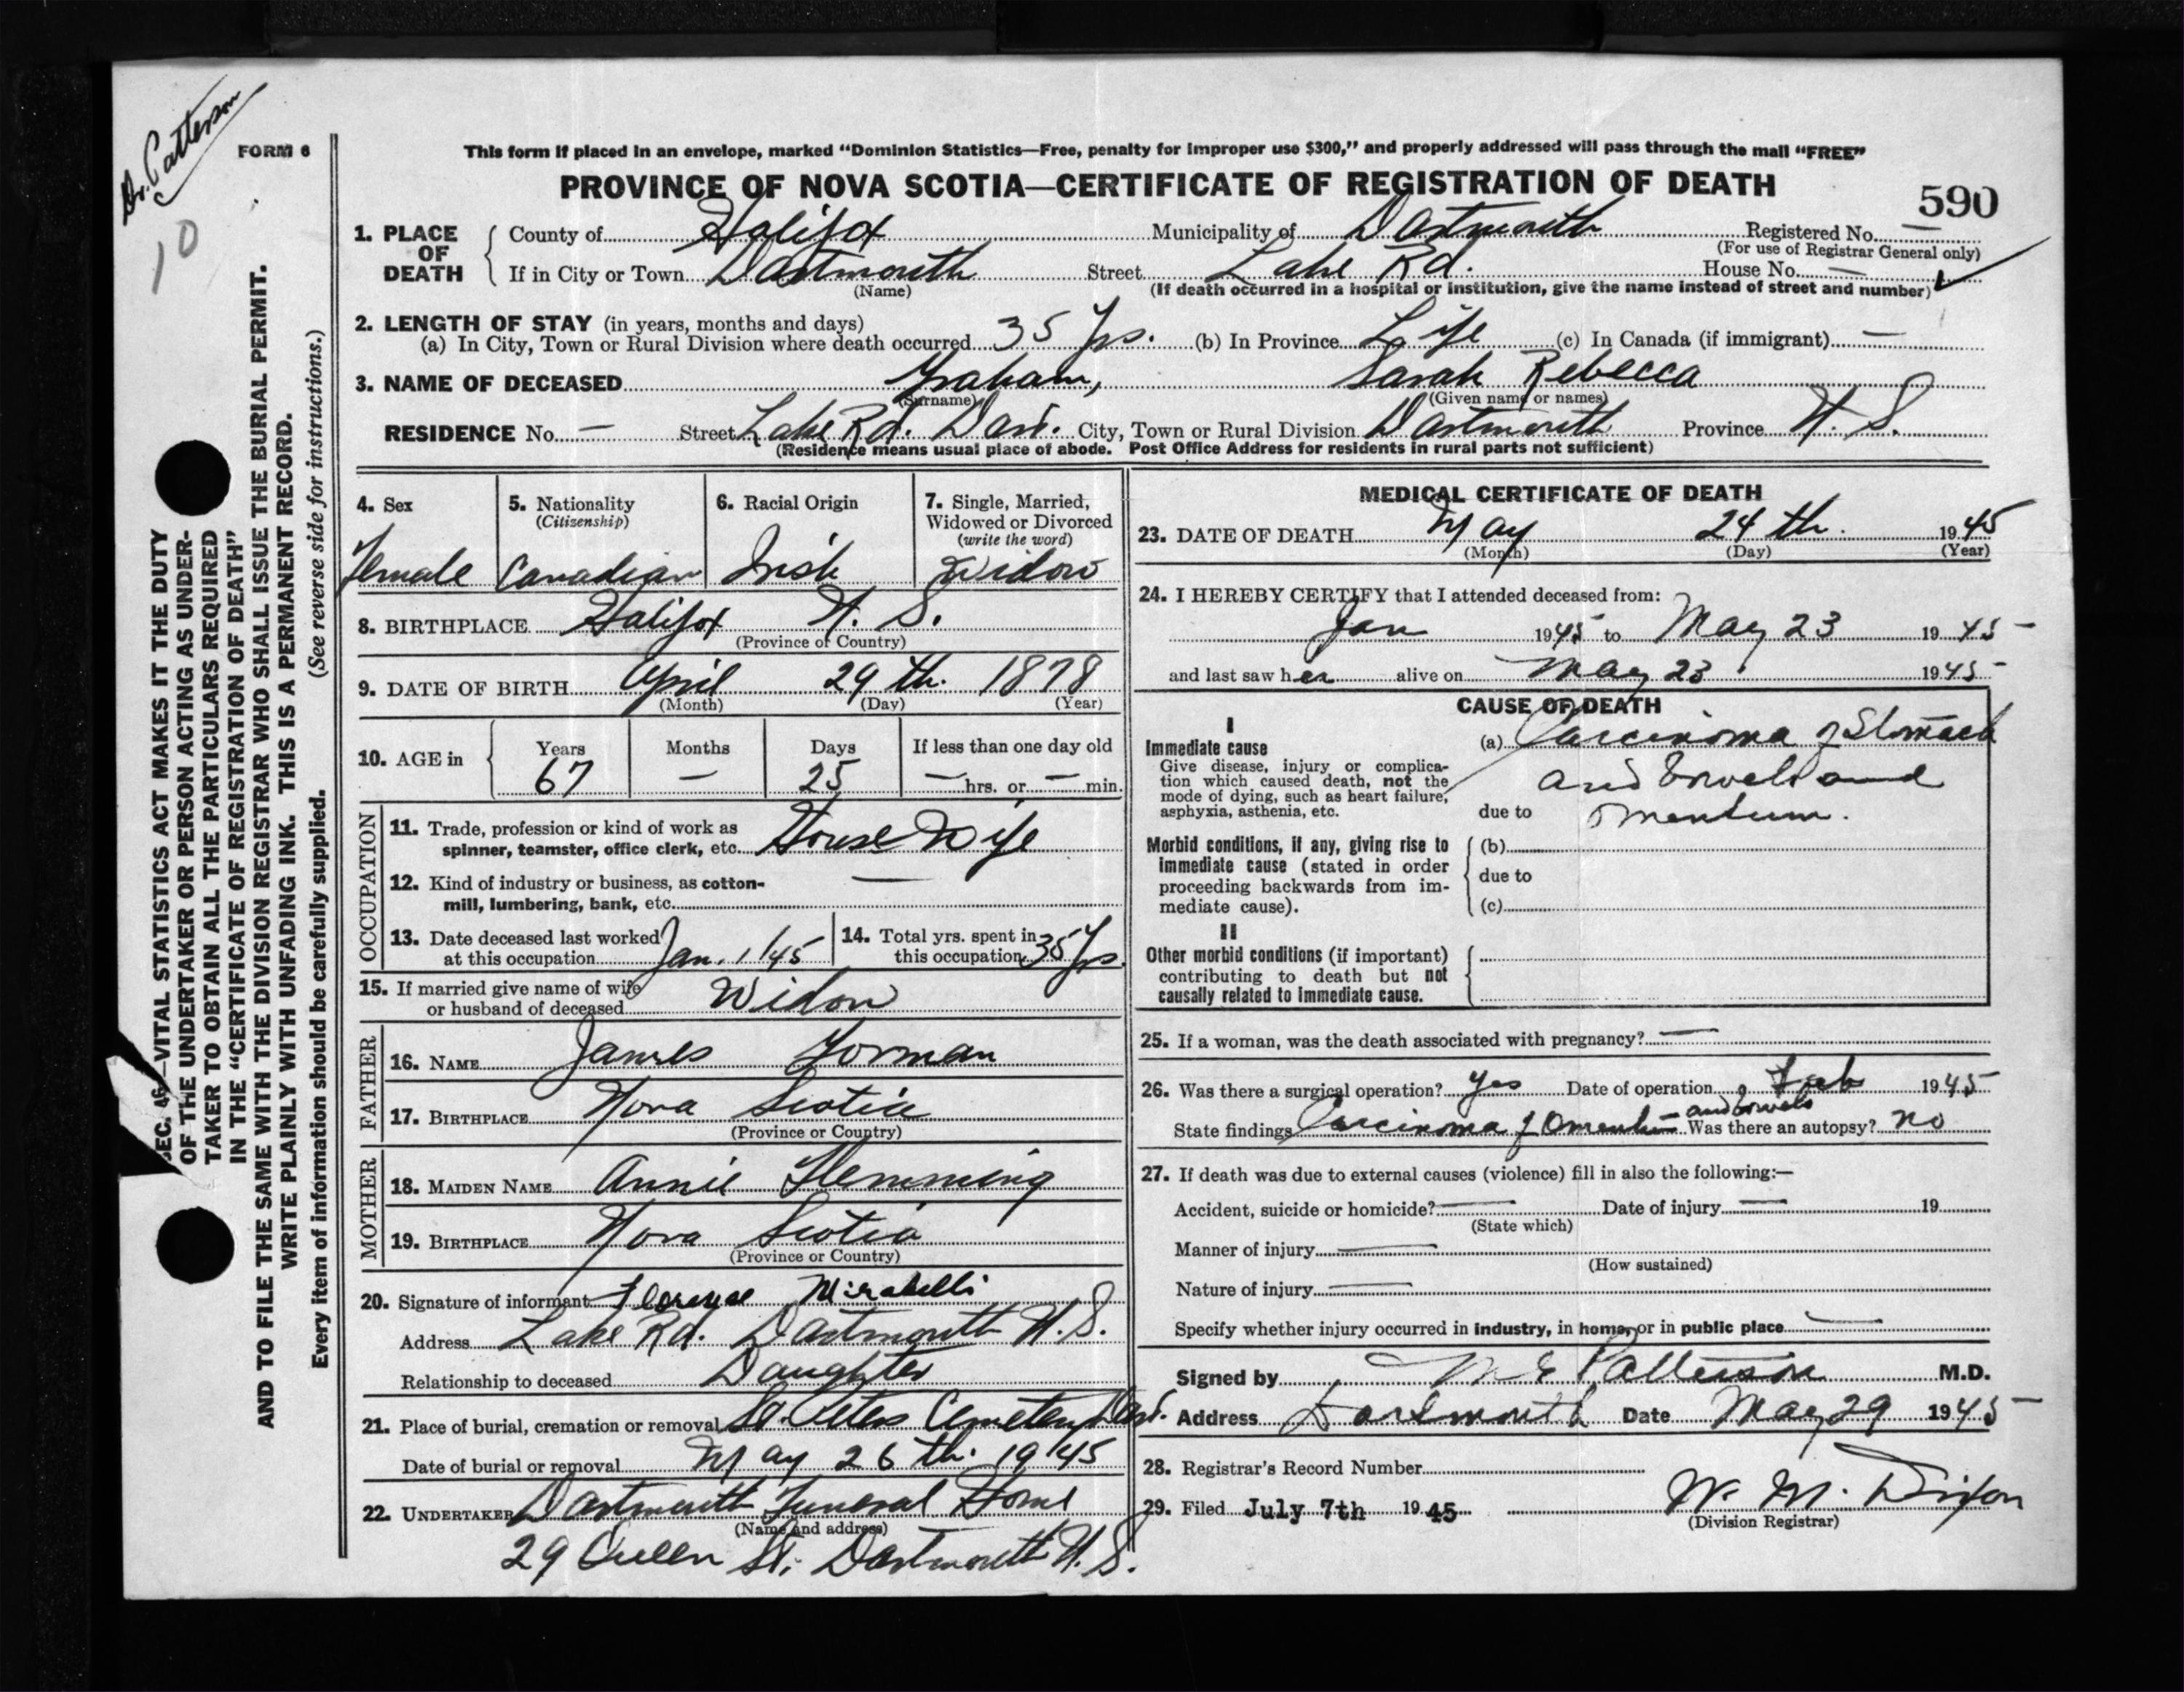 Dr. Patterson
10
FORM 6
This form if placed in an envelope, marked “Dominion Statistics—Free, penalty for improper use $300,” and properly addressed will pass through the mail “FREE”
PROVINCE OF NOVA SCOTIA—CERTIFICATE OF REGISTRATION OF DEATH
590
1. PLACE OF DEATH
County of Halifax Municipality of Dartmouth Registered No. —
(For use of Registrar General only)
If in City or Town Dartmouth Street Lake Rd. House No. —
(Name) (If death occurred in a hospital or institution, give the name instead of street and number)
2. LENGTH OF STAY (in years, months and days)
(a) In City, Town or Rural Division where death occurred 35 Yrs. (b) In Province Life (c) In Canada (if immigrant) —
3. NAME OF DECEASED Graham, Sarah Rebecca
(Surname) (Given name or names)
RESIDENCE No. — Street Lake Rd. Dart. City, Town or Rural Division Dartmouth Province N. S.
(Residence means usual place of abode. Post Office Address for residents in rural parts not sufficient)
4. Sex
Female
5. Nationality
(Citizenship)
Canadian
6. Racial Origin
Irish
7. Single, Married,
Widowed or Divorced
(write the word)
Widow
8. BIRTHPLACE Halifax N. S.
(Province or Country)
9. DATE OF BIRTH April 29th. 1878
(Month) (Day) (Year)
10. AGE in
Years Months Days If less than one day old
67 — 25 — hrs. or — min.
OCCUPATION
11. Trade, profession or kind of work as
spinner, teamster, office clerk, etc. House Wife
12. Kind of industry or business, as cotton-
mill, lumbering, bank, etc. —
13. Date deceased last worked
at this occupation Jan. 1/45
14. Total yrs. spent in
this occupation 35 Yrs.
15. If married give name of wife
or husband of deceased Widow
FATHER
16. NAME James Gorman
17. BIRTHPLACE Nova Scotia
(Province or Country)
MOTHER
18. MAIDEN NAME Annie Flemming
19. BIRTHPLACE Nova Scotia
(Province or Country)
20. Signature of informant Florence Mirabelli
Address Lake Rd. Dartmouth N. S.
Relationship to deceased Daughter
21. Place of burial, cremation or removal St. Peters Cemetery Dart.
Date of burial or removal May 26th. 1945
22. UNDERTAKER Dartmouth Funeral Home
(Name and address)
29 Queen St. Dartmouth N. S.
MEDICAL CERTIFICATE OF DEATH
23. DATE OF DEATH May 24th. 1945
(Month) (Day) (Year)
24. I HEREBY CERTIFY that I attended deceased from:
Jan 1945 to May 23 1945
and last saw her alive on May 23 1945
CAUSE OF DEATH
I
Immediate cause
Give disease, injury or complica-
tion which caused death, not the
mode of dying, such as heart failure,
asphyxia, asthenia, etc.
(a) Carcinoma of Stomach
and bowels and
due to omentum.
Morbid conditions, if any, giving rise to
immediate cause (stated in order
proceeding backwards from im-
mediate cause).
(b)
due to
(c)
II
Other morbid conditions (if important)
contributing to death but not
causally related to immediate cause.
25. If a woman, was the death associated with pregnancy? —
26. Was there a surgical operation? Yes Date of operation Feb 1945
and bowels
State findings Carcinoma of Omentum Was there an autopsy? no
27. If death was due to external causes (violence) fill in also the following:—
Accident, suicide or homicide? — Date of injury — 19
(State which)
Manner of injury —
(How sustained)
Nature of injury —
Specify whether injury occurred in industry, in home, or in public place —
Signed by M E Patterson M.D.
Address Dartmouth Date May 29 1945
28. Registrar's Record Number
29. Filed July 7th 1945 W. M. Dixon
(Division Registrar)
SEC. 46—VITAL STATISTICS ACT MAKES IT THE DUTY
OF THE UNDERTAKER OR PERSON ACTING AS UNDER-
TAKER TO OBTAIN ALL THE PARTICULARS REQUIRED
IN THE “CERTIFICATE OF REGISTRATION OF DEATH”
AND TO FILE THE SAME WITH THE DIVISION REGISTRAR WHO SHALL ISSUE THE BURIAL PERMIT.
WRITE PLAINLY WITH UNFADING INK. THIS IS A PERMANENT RECORD.
Every item of information should be carefully supplied. (See reverse side for instructions.)